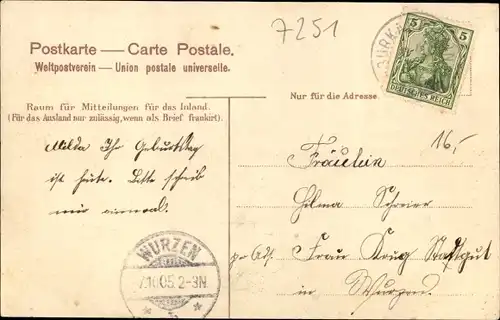 7251
Postkarte — Carte Postale.
Weltpostverein — Union postale universelle.
5 5
DEUTSCHES REICH
Raum für Mitteilungen für das Inland.
(Für das Ausland nur zulässig, wenn als Brief frankirt).
Nur für die Adresse
16,-
Milda Ihr Geburtstag
ist heute. Bitte schreib
mir einmal.
Fräulein
Helma Schreier
Frau Krug Stadtgut
in Wurzen.
WURZEN
7.10.05.2-3N